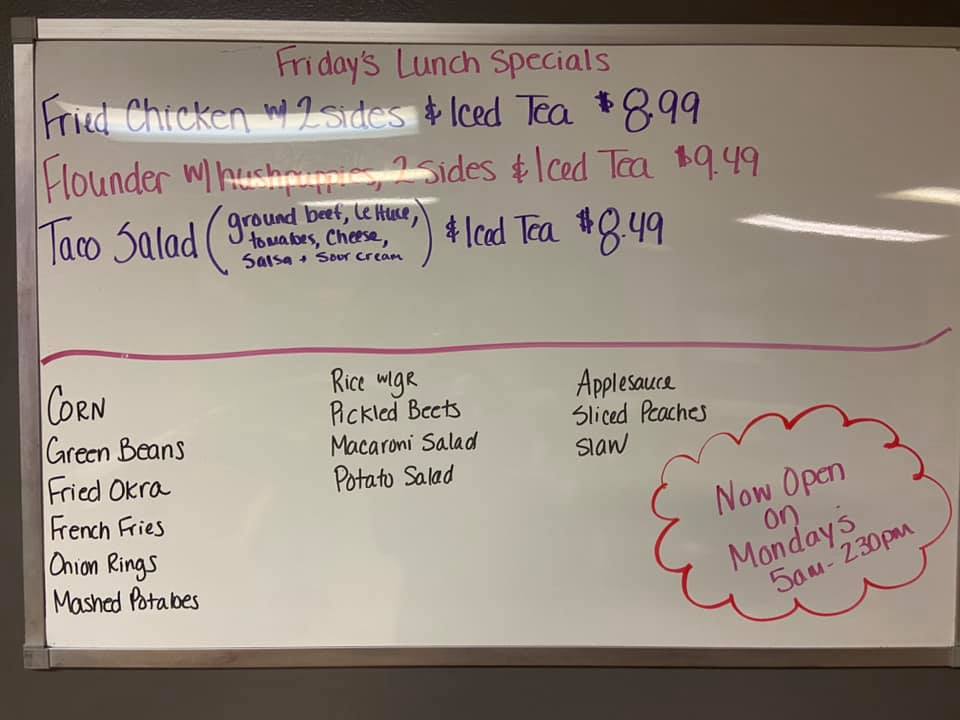 Friday's Lunch Specials
Fried Chicken w/ 2 sides & Iced Tea $8.99
Flounder w/ hushpuppies, 2 sides & Iced Tea $9.49
Taco Salad (ground beef, lettuce, tomatoes, Cheese, Salsa + Sour cream) & Iced Tea $8.49
Corn
Green Beans
Fried Okra
French Fries
Onion Rings
Mashed Potatoes
Rice w/gr
Pickled Beets
Macaroni Salad
Potato Salad
Applesauce
Sliced Peaches
Slaw
Now Open
on
Monday's
5am - 230pm